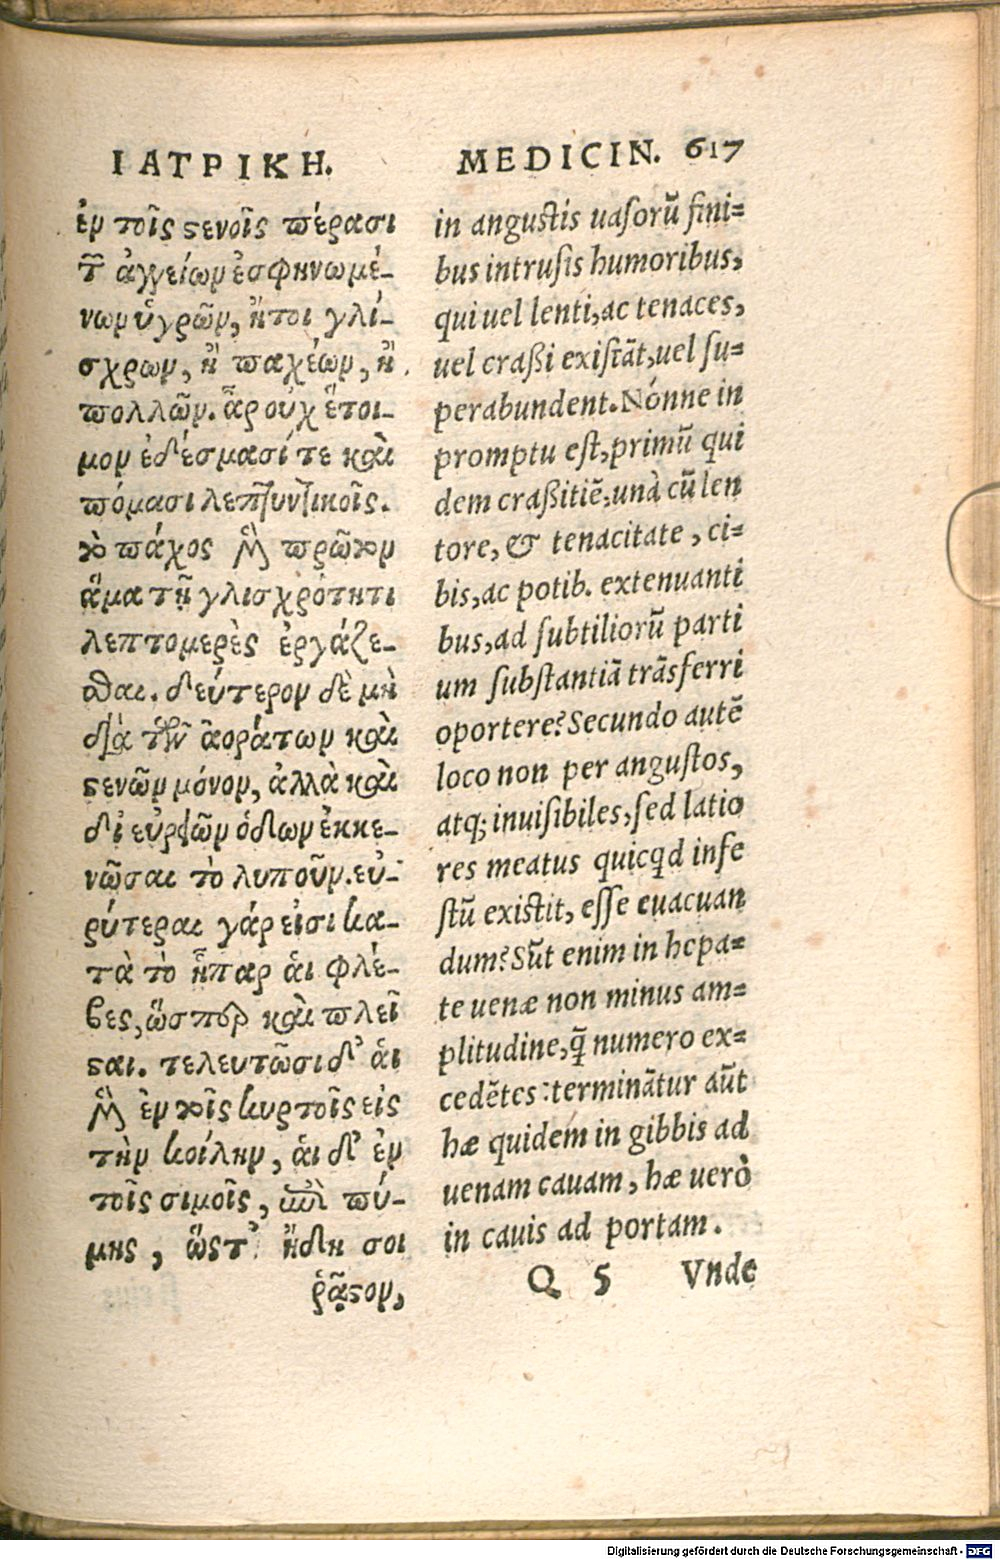 ΙΑΤΡΙΚΗ.
ἐν τοῖς ϛενοῖς πέρασι
τ͂ ἀγγείων ἐσφηνωμέ-
νων ὑγρῶν, ἤτοι γλί-
σχρων, ἢ παχέων, ἢ
πολλῶν. ἆρ οὐχ ἕτοι-
μον ἐδέσμασί τε καὶ
πόμασι λεπτυντικοῖς.
τὸ πάχος μὲν πρῶτον
ἅμα τῇ γλισχρότητι
λεπτομερὲς ἐργάζε-
σθαι. δεύτερον δὲ μὴ
διὰ τῶν ἀοράτων καὶ
ϛενῶν μόνον, ἀλλὰ καὶ
δι εὐρέων ὁδῶν ἐκκε-
νῶσαι τὸ λυποῦν. εὐ-
ρύτεραι γάρ εἰσι κα-
τὰ τὸ ἧπαρ ἁι φλέ-
βες, ὥσπερ καὶ πλεῖ
ϛαι. τελευτῶσι δ' ἁι
μὲν ἐν τοῖς κυρτοῖς εἰς
τὴν κοίλην, ἁι δ' ἐν
τοῖς σιμοῖς, ἐπὶ πύ-
μης, ὥϛτ' ἤδη σοι
ῥᾷϛον,
MEDICIN. 617
in angustis uasorũ fini=
bus intrusis humoribus,
qui uel lenti, ac tenaces,
uel craßi existãt, uel su=
perabundent. Nónne in
promptu est, primũ qui
dem craßitiẽ, unà cũ len
tore, & tenacitate, ci=
bis, ac potib. extenuanti
bus, ad subtiliorũ parti
um substantiã trãsferri
oportere? Secundo autẽ
loco non per angustos,
atq; inuisibiles, sed latio
res meatus quicq̃d infe
stũ existit, esse euacuan
dum? Sũt enim in hepa=
te uenæ non minus am=
plitudine, q̃ numero ex=
cedẽtes: terminãtur aũt
hæ quidem in gibbis ad
uenam cauam, hæ uerò
in cauis ad portam.
Q 5 Vnde
Digitalisierung gefördert durch die Deutsche Forschungsgemeinschaft - DFG